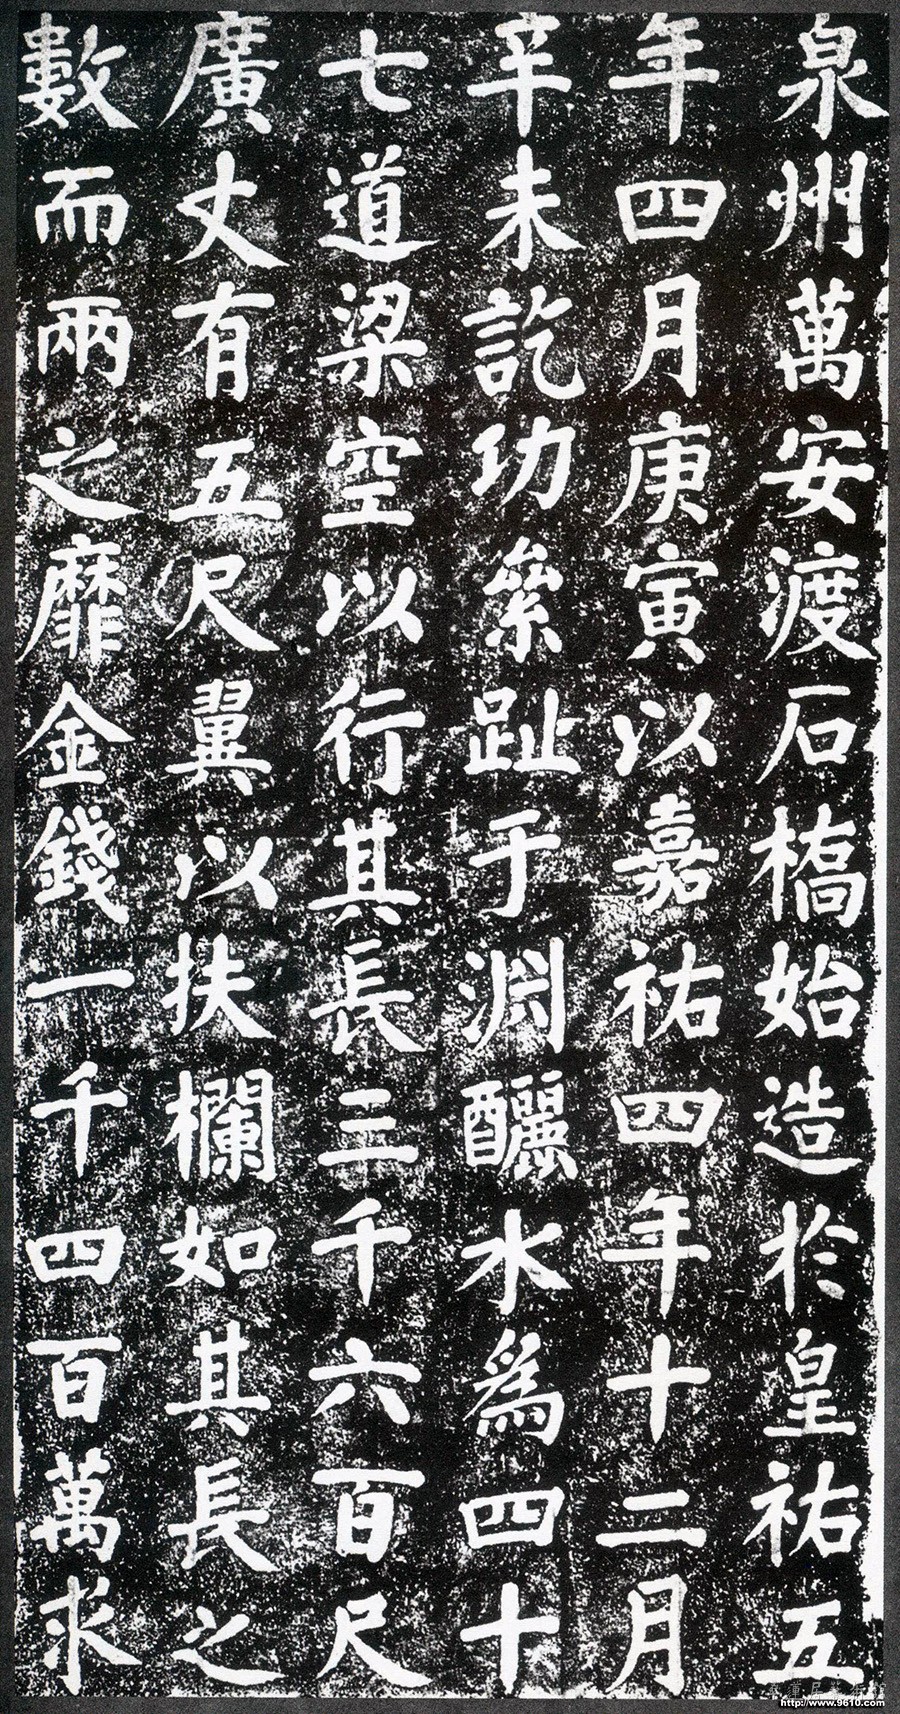 泉州萬安渡石橋始造於皇祐五
年四月庚寅以嘉祐四年十二月
辛未訖功絫趾于淵釃水為四十
七道梁空以行其長三千六百尺
廣丈有五尺翼以扶欄如其長之
數而兩之靡金錢一千四百萬求
http://www.9610.com